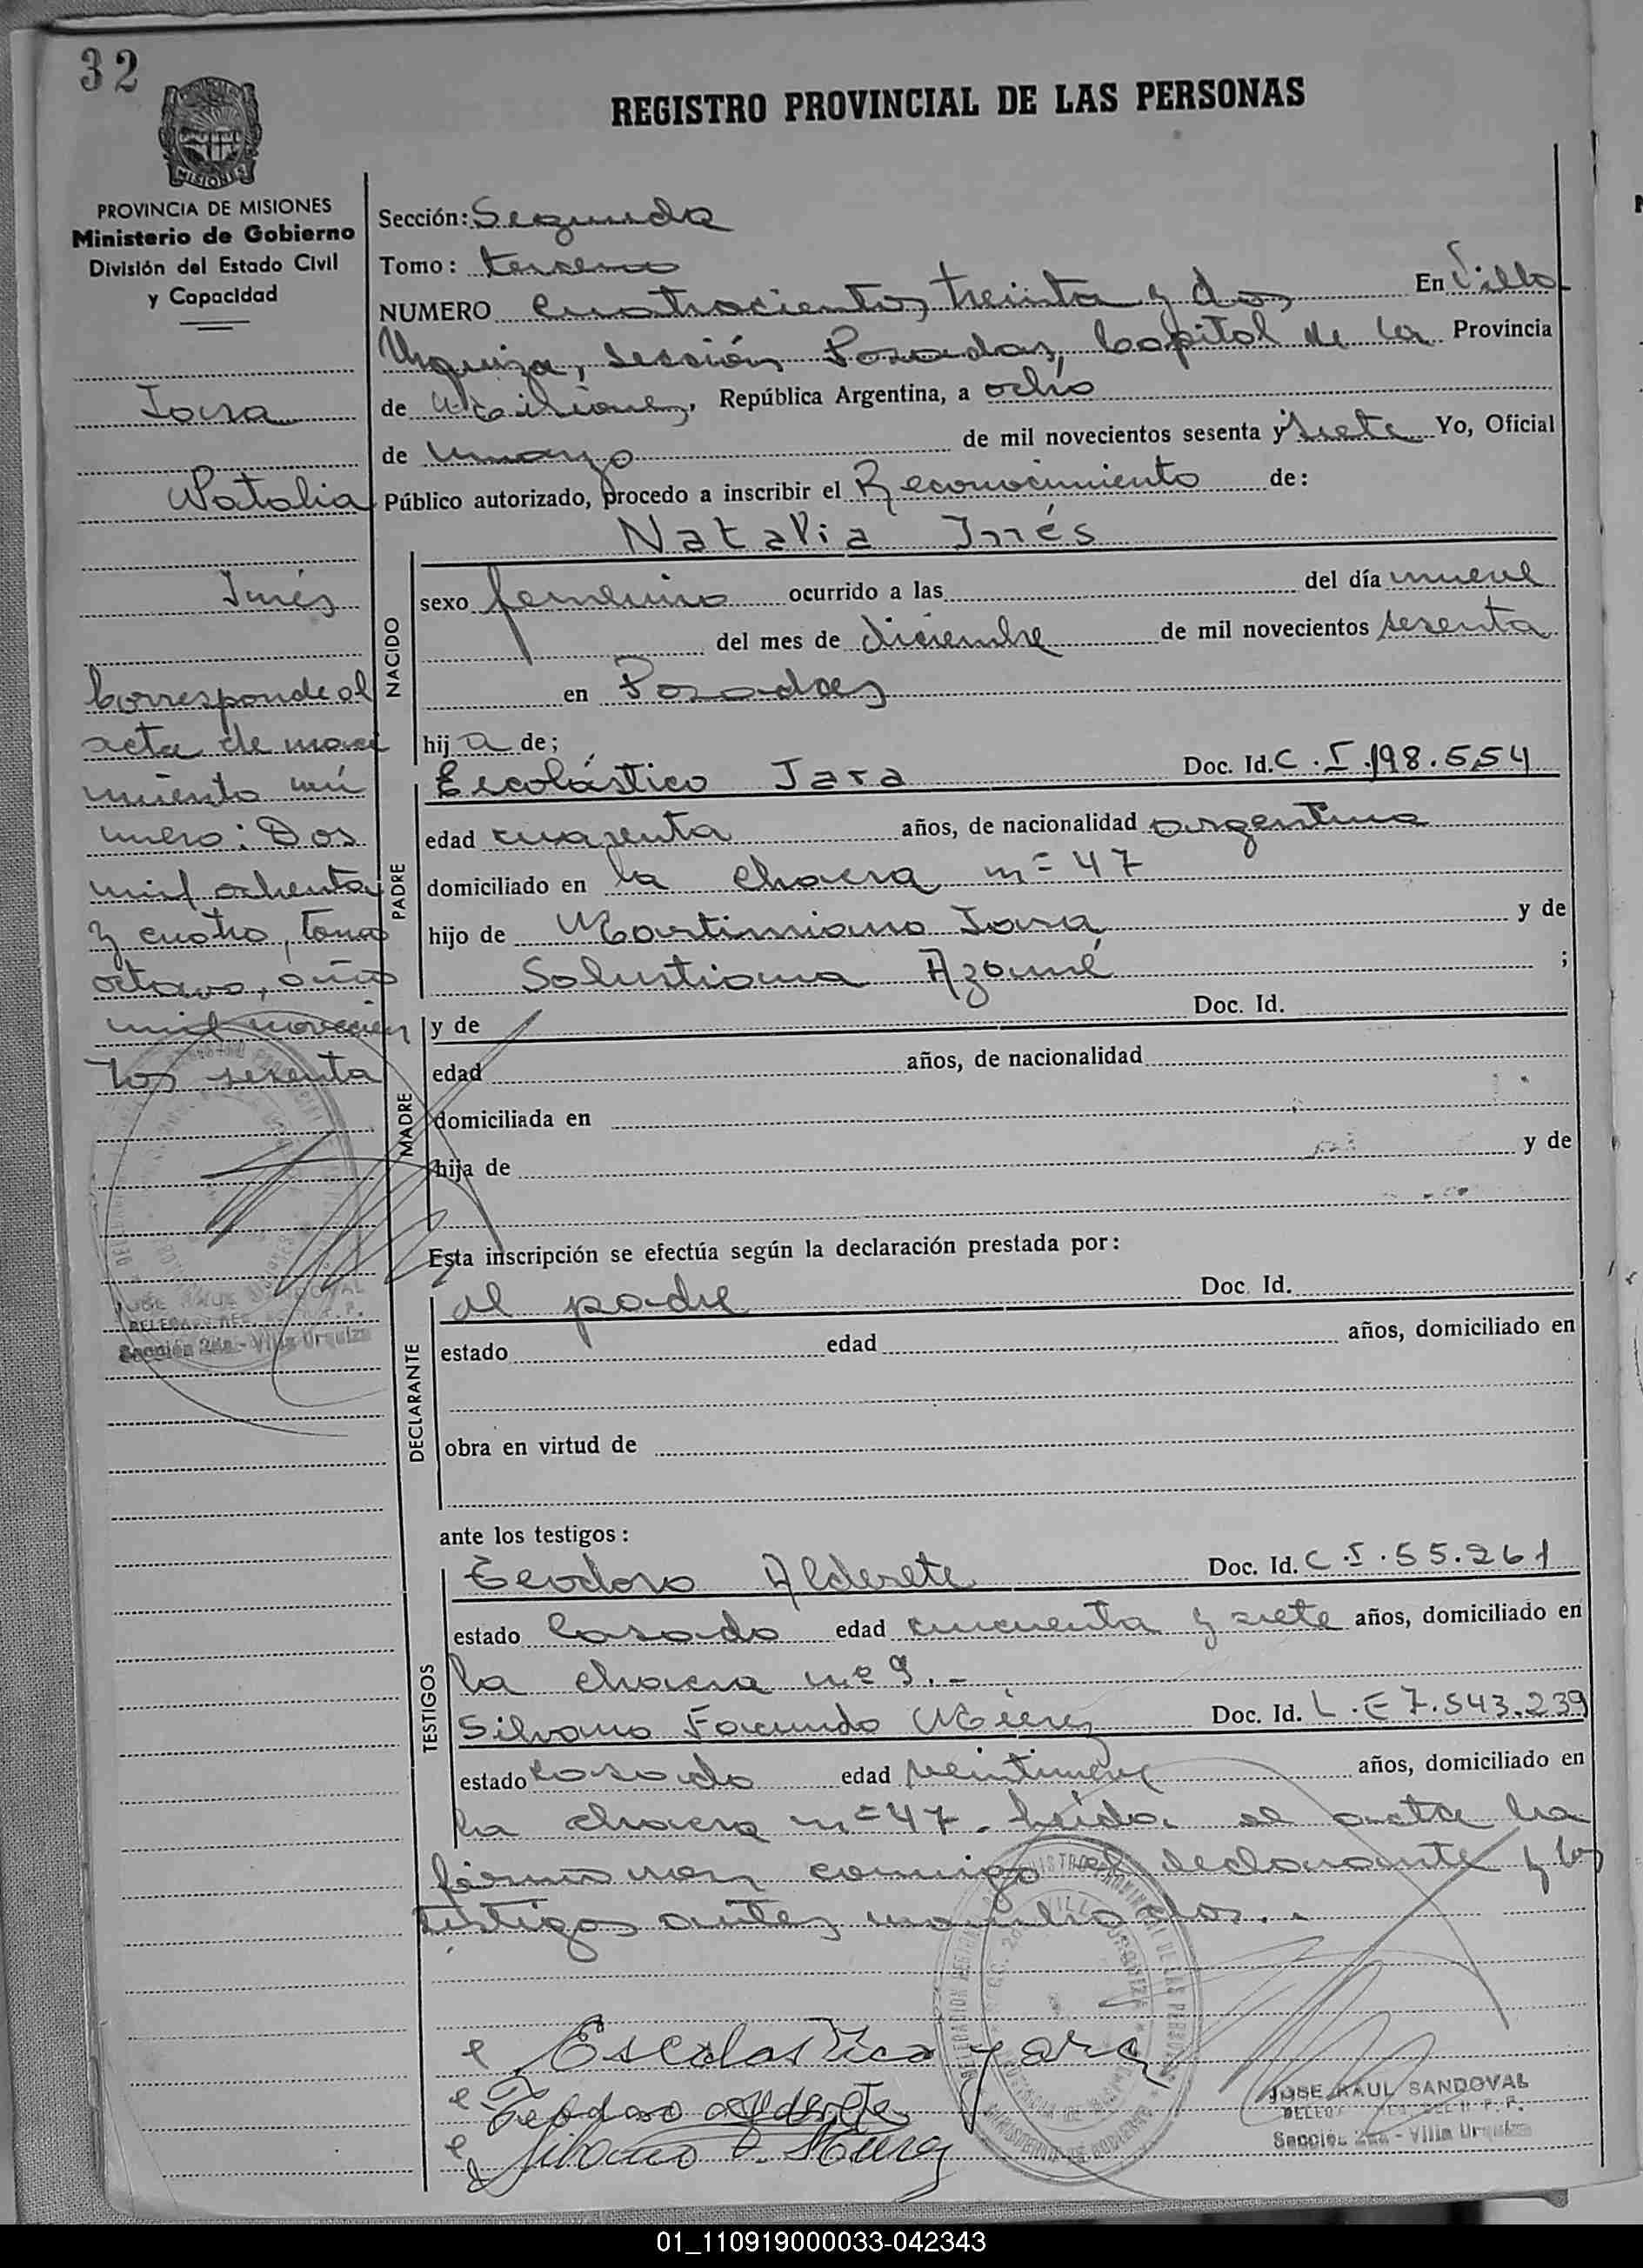 32
MISIONES
REGISTRO PROVINCIAL DE LAS PERSONAS
PROVINCIA DE MISIONES
Ministerio de Gobierno
División del Estado Civil
y Capacidad
Jara
Natalia
Inés
Corresponde al
acta de naci
miento nú
mero: Dos
mil ochenta
y cuatro, tomo
octavo, año
mil novecien
tos sesenta
JOSE RAUL SANDOVAL
Sección 2da - Villa Urquiza
Sección: Segunda
Tomo: tercero
NUMERO cuatrocientos treinta y dos En Villa
Urquiza, sección Posadas, Capital de la Provincia
de Misiones, República Argentina, a ocho
de marzo de mil novecientos sesenta y siete Yo, Oficial
Público autorizado, procedo a inscribir el Reconocimiento de:
Natalia Inés
NACIDO
sexo femenino ocurrido a las del día nueve
del mes de diciembre de mil novecientos sesenta
en Posadas
hija de;
PADRE
Escolástico Jara Doc. Id. C.I. 198.554
edad cuarenta años, de nacionalidad argentina
domiciliado en la chacra nº 47
hijo de Martimiano Jara y de
Salustiana ;
MADRE
y de Doc. Id.
edad años, de nacionalidad
domiciliada en
hija de y de
Esta inscripción se efectúa según la declaración prestada por:
DECLARANTE
el padre Doc. Id.
estado edad años, domiciliado en
obra en virtud de
ante los testigos:
TESTIGOS
Teodoro Alderete Doc. Id. C.I. 55.261
estado Casado edad cincuenta y siete años, domiciliado en
la chacra nº 9.-
Silvano Facundo Doc. Id. L.E 7.543.239
estado casado edad veintinueve años, domiciliado en
la chacra nº 47. Leída el acta la
firman conmigo el declarante y los
testigos antes nombrados.-
Escolastico Jara
Teodoro Alderete
JOSE RAUL SANDOVAL
Sección 2da - Villa Urquiza
01_110919000033-042343